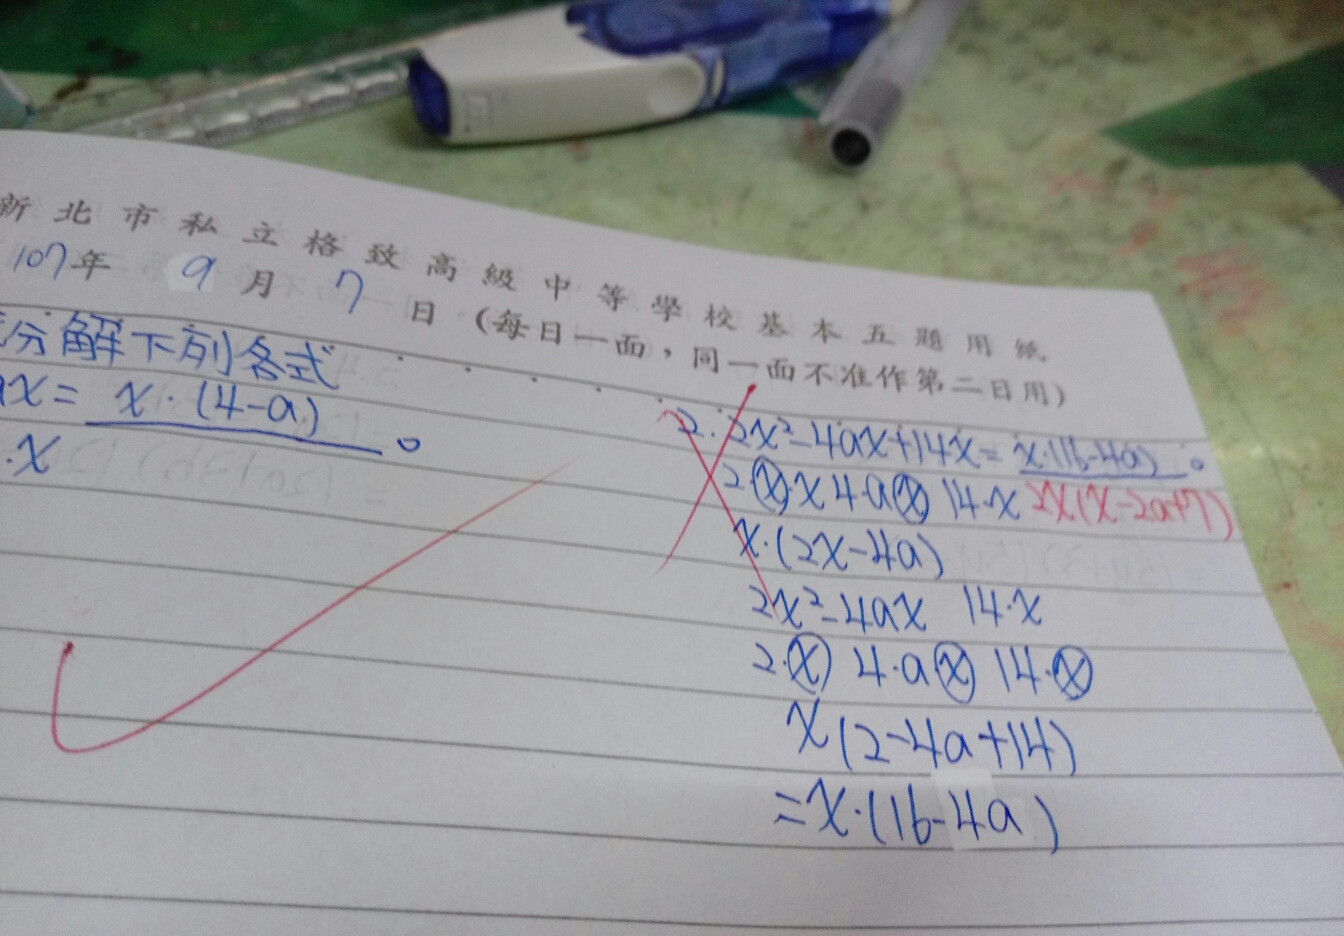 新北市私立格致高級中等學校基本五題用紙
107年 9月 7日(每日一面,同一面不准作第二日用)
分解下列各式
x= x·(4-a)。
·x
2. 2x²-4ax+14x= x·(16-4a)。
2·x·x 4·a·x 14·x 2x(x-2a+7)
x·(2x-4a)
2x²-4ax 14·x
2·x 4·a·x 14·x
x(2-4a+14)
=x·(16-4a)